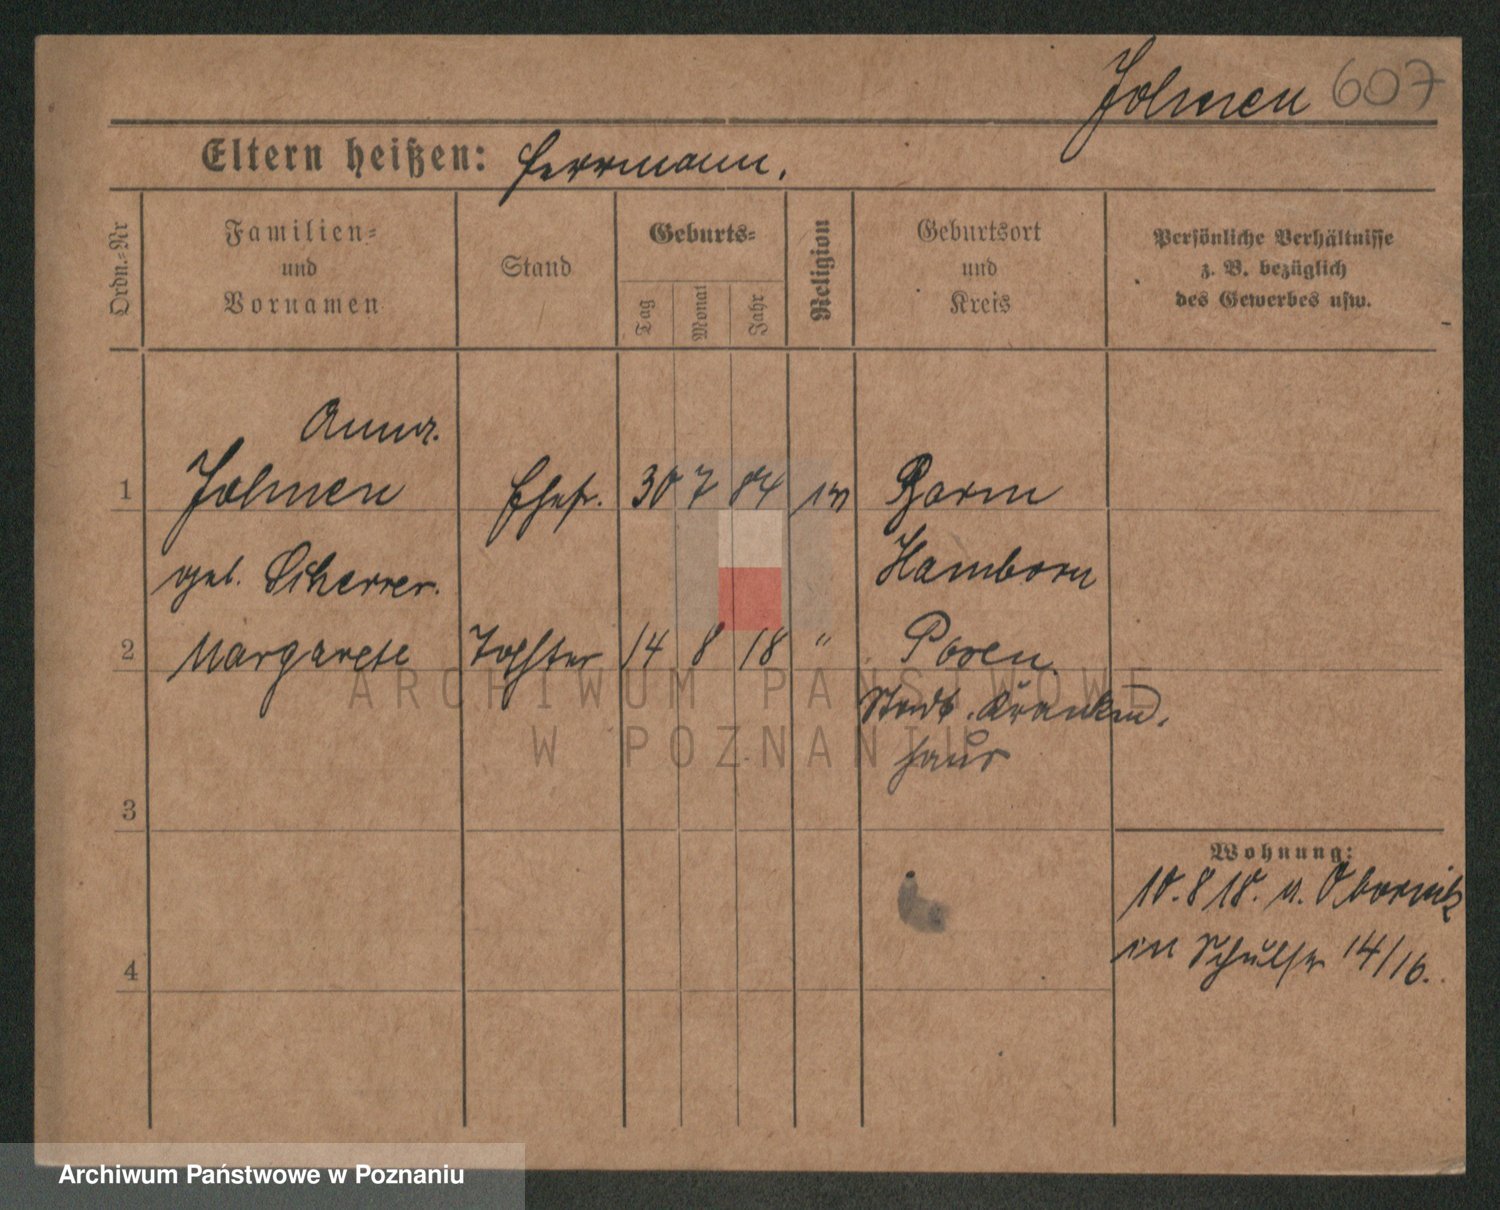 Jolmen 607
Eltern heißen: Herrmann.
Ordn.=Nr
Familien=
und
Vornamen
Stand
Geburts=
Tag
Monat
Jahr
Religion
Geburtsort
und
Kreis
Persönliche Verhältnisse
z. B. bezüglich
des Gewerbes usw.
Anna
1 Jolmen Ehefr. 30 7 84
Hamborn
geb. Scherrer.
2 Margarete Tochter 14 8 18 " Posen
Stadt. Kranken
haus
3
Wohnung:
10. 8 18. v. Obornik
in Schulstr 14/16.
4
ARCHIWUM PAŃSTWOWE
W POZNANIU
Archiwum Państwowe w Poznaniu